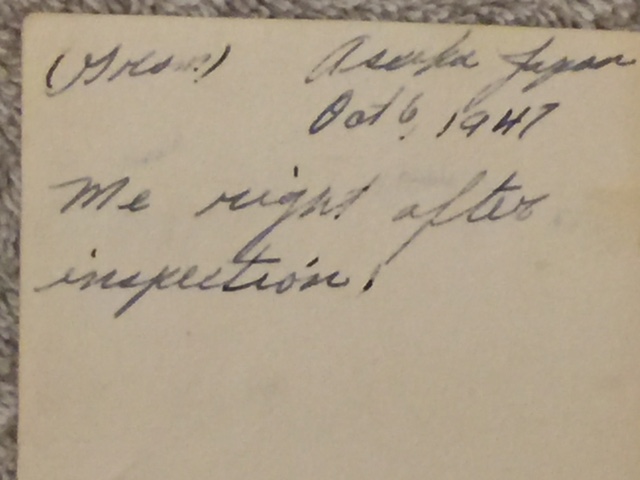 Asaka Japan
Oct 6, 1947
Me right after
inspection!